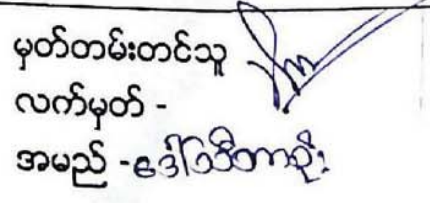 မှတ်တမ်းတင်သူ
လက်မှတ် -
အမည် -ဒေါ်သီတာစိုး